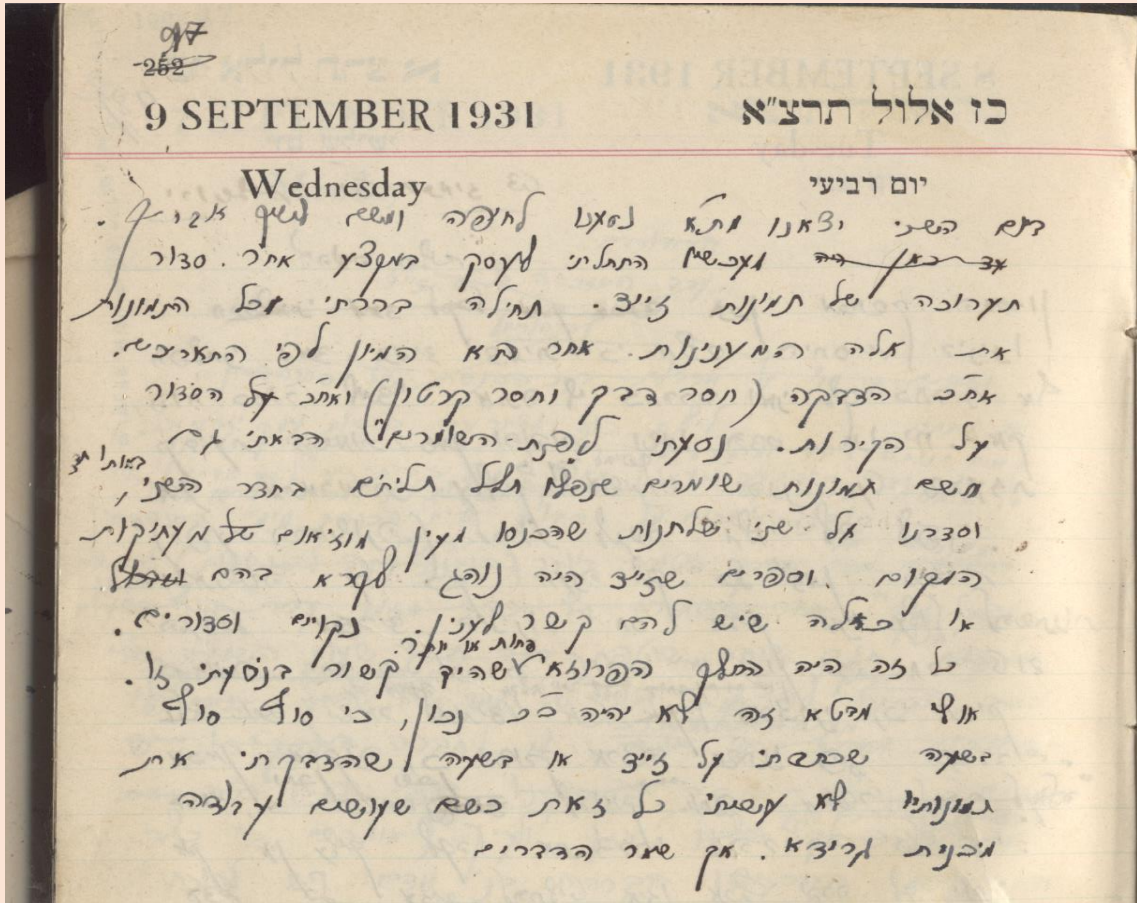 97
252
9 SEPTEMBER 1931 כז אלול תרצ"א
Wednesday יום רביעי
ביום השני יצאנו מת"א נסענו לחיפה ומשם לשיך אבריק.
עד כאן היה מעכשיו התחלתי לעסק במקצע אחר. סדור
תערוכה של תמונות זייד. תחילה בררתי מכל התמונות
את אלה המענינות. אחר בא המיון לפי התאריכים.
אח"כ הדבקה (חסר דבק וחסר קרטון) ואח"כ על הסדור
על הקירות. נסעתי לפנת-השומרים הבאתי גם
משם תמונות שומרים שנפלו חלל תליתים בחדר השני,
באותו
וסדרנו על שני שלחנות שהכנסו מעין מוזיאום של מעתיקות
המקום. וספרים שזייד היה נוהג לקרא בהם
או כאלה שיש להם קשר לענין. נקוים וסדורים.
פחות או יותר
כל זה היה החלק הפרוזאי שהיה קשור בנסעתי זו.
אולי מבטא זה לא יהיה כ"כ נכון, כי סוף סוף
בשעה שכתבתי על זייד או בשעה שהדבקתי את
תמונותיו לא עשיתי כל זאת כשם שעושים עבודה
מכנית גרידא. אך שאר הדברים